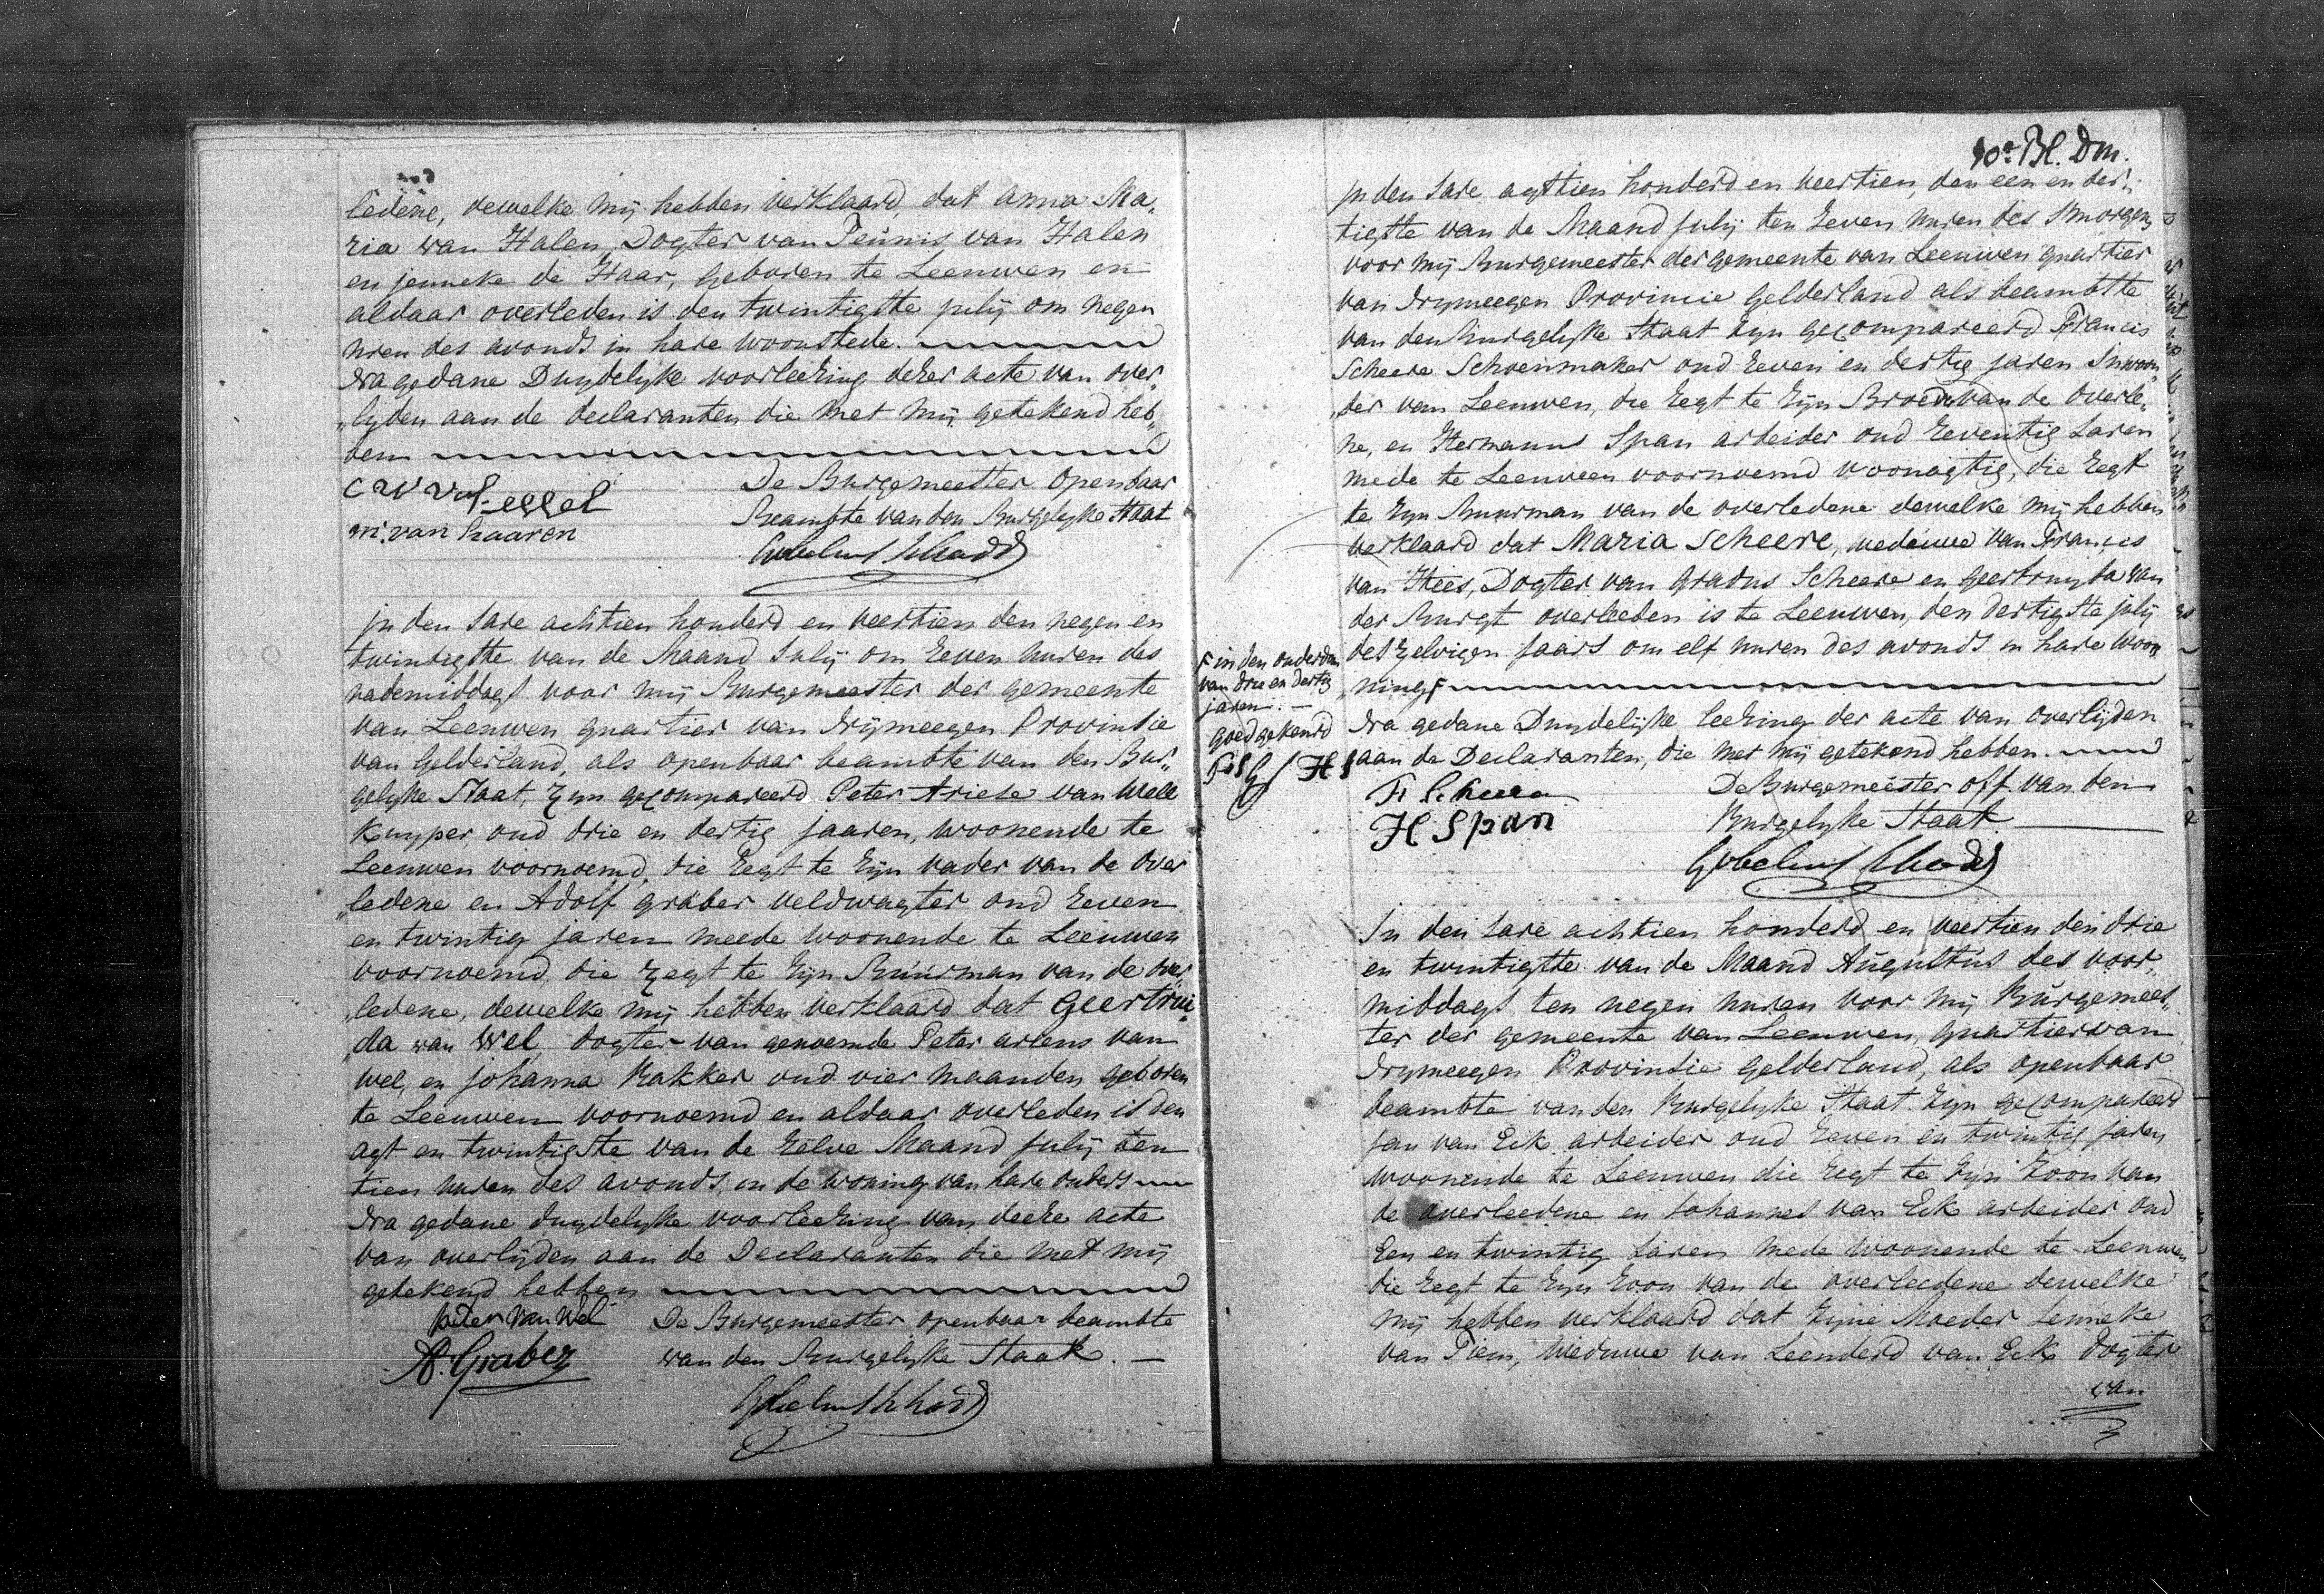 ledene, dewelke mij hebben verklaard, dat Anna Ma„
ria van Halen, Dogter van Teunis van Halen
en jenneke de Haar, geboren te Leeuwen en
aldaar overleden is den twintigste julij om negen
uren des avonds in hare woonstede.
Na gedane Duydelyke voorleezing dezer acte van over„
„lyden aan de declaranten die met mij getekend heb„
ben
m. van haaren
De Burgemeester openbaar
Beambte van den Burgelyke Staat
in den Jare achtien honderd en veertien den negen en
twintigste van de Maand Julij om zeven uuren des
nademiddags voor mij Burgemeester der gemeente
van Leeuwen quartier van Nijmeegen Provintie
van Gelderland, als openbaar beambte van den Bur„
gelyke Staat, zyn gecompareerd Peter Ariese van Well
Kuyper, oud drie en dertig jaaren, woonende te
Leeuwen voornoemd, die zegt te zyn vader van de over
„ledene en Adolf gräber veldwagter oud zeven
en twintig jaren meede woonende te Leeuwen
voornoemd, die zegt te zyn Buurman van de over
„ledene, dewelke mij hebben verklaard dat Geertrui
„da van Wel, dogter van genoemde Peter ariens van
wel, en johanna Bakker oud vier maanden geboren
te Leeuwen voornoemd en aldaar overleden is den
agt en twintigste van de zelve Maand julij ten
tien uuren des avonds, in de woning van hare ouders
Na gedane duydelyke voorleezing van deeze acte
van overlijden aan de Declaranten die met mij
getekend hebben
Peter van Wel
De Burgemeester openbaar beambte
A. Graber
van den Burgelyke Staat.
10e Bl. Dm.
in den Jare agttien honderd en veertien, den een en der„
tigste van de Maand julij ten zeven uuren des smorgens
voor mij Burgemeester der gemeente van Leeuwen quartier
van Nymeegen Provincie Gelderland als beambtte
van den Burgelyke Staat zyn gecompareerd Francis
Scheere Schoenmaker oud zeven en dertig jaren Inwoon„
„der van Leeuwen, die zegt te zyn Broeder van de overle„
ne, en Hermanus Span arbeider oud zeventig Jaren
mede te Leeuwen voornoemd woonagtig, die zegt
te zyn Buurman van de overledene dewelke mij hebben
verklaard dat Maria Scheere, weduwe van Francis
van Hees, Dogter van Gradus Scheere en geertruyda van
der Burgt overleeden is te Leeuwen, den dertigste julij
des zelvigen jaars om elf uuren des avonds in hare woon
„ning
in den ouderdom
van drie en dertig
jaren.
goedgekeurd
FS HS
Na gedane Duydelijke leezing der acte van overlijden
aan de Declaranten, die met mij getekend hebben.
F. Scheere
De Burgemeester off. van den
H Span
Burgelyke Staat
In den Jare achtien honderd en veertien den drie
en twintigste van de Maand Augustus des voor„
middags ten negen uuren voor mij Burgemees„
ter der gemeente van Leeuwen, quartier van
Nymeegen Provintie Gelderland, als openbaar
beambte van den Burgelyke Staat zyn gecompareerd
Jan van Eck arbeider oud zeven en twintig jaren
woonende te Leeuwen die zegt te zyn zoon van
de overleedene en Johannes van Eck arbeider oud
Een en twintig Jaren mede woonende te Leeuwen
die zegt te zyn zoon van de overleedene dewelke
mij hebben verklaard dat zyne Moeder Jenneke
van Tiem, Weduwe van Leenderd van Eck Dogter
van